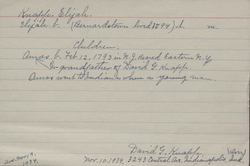 Knapp, Elijah.
Elijah b. (Bernardstown lived 1789) h m
Children.
Amos b. Feb. 12, 1793 in N.J. Reared Eastern N.Y.
Grandfather of David G. Knapp.
Amos went to Indiana when a young man.
David G. Knapp
Nov. 10, 1939, 3243 Central Ave, Indianapolis, Ind.
Nov. 14, 1939.